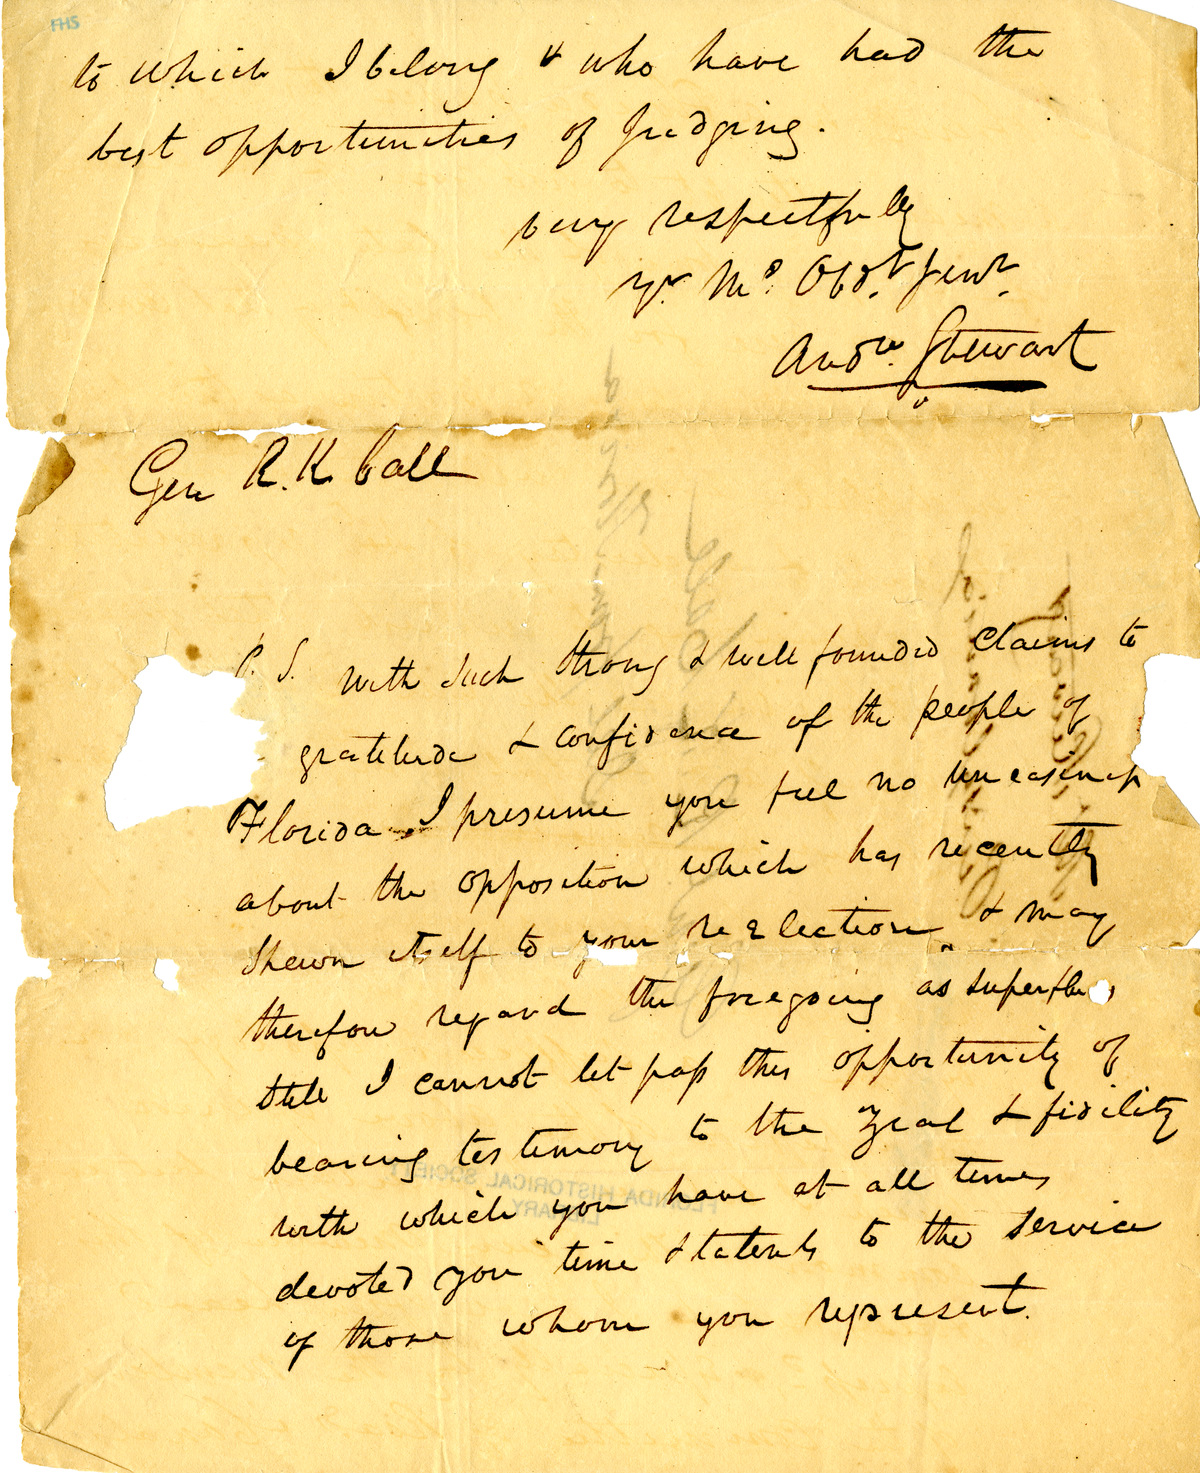 FHS
to which I belong & who have had the
best opportunities of judging.
very respectfully
Yr. Mo. Obdt. Servt.
Andw. Stewart
Gen R. K. Call
P. S. with such strong & well founded claims to
gratitude & confidence of the people of
Florida I presume you feel no uneasiness
about the opposition which has recently
shewn itself to your reelection, & may
therefore regard the foregoing as
still I cannot let pass this opportunity of
bearing testimony to the zeal & fidility
with which you have at all times
devoted your time & talents to the service
of those whom you represent.
FLORIDA HISTORICAL SOCIETY
LIBRARY